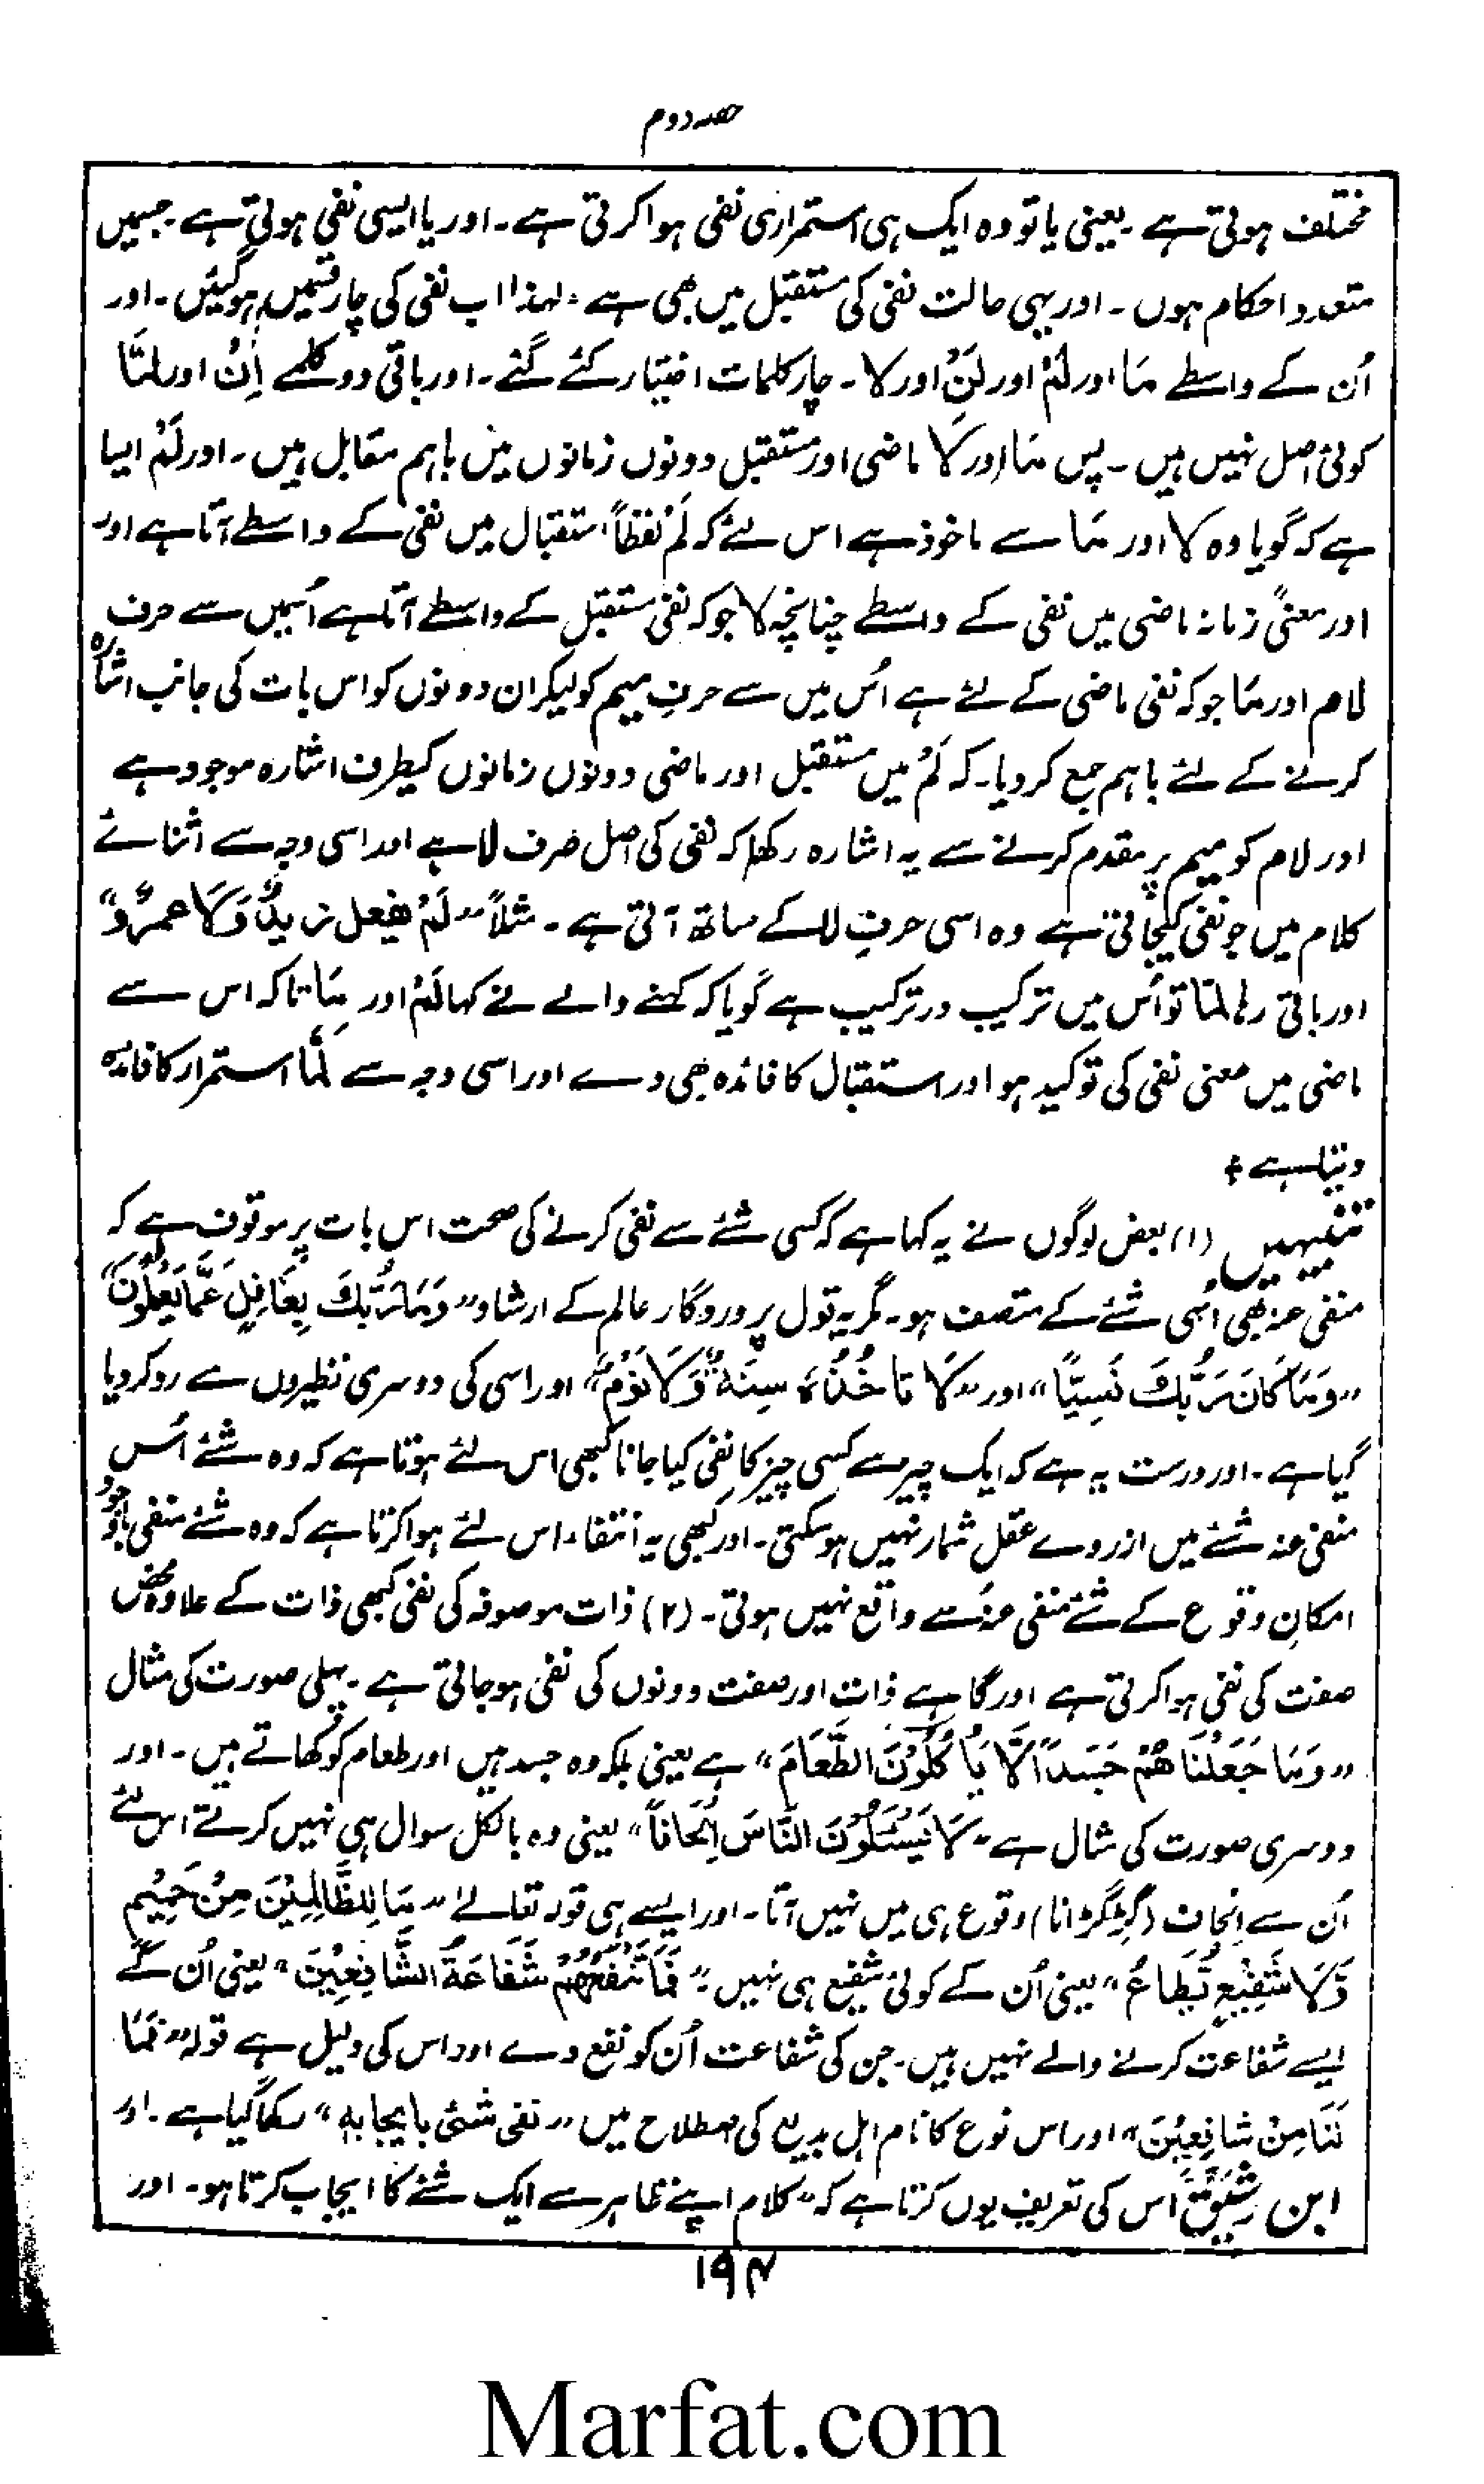 حصہ دوم
مختلف ہوتی ہے ۔ یعنی یا تو وہ ایک ہی استمراری نفی ہوا کرتی ہے ۔ اور یا ایسی نفی ہوتی ہے جسمیں
متعدد احکام ہوں ۔ اور یہی حالت نفی کی مستقبل میں بھی ہے ، لہذا اب نفی کی چار قسمیں ہوگئیں ۔ اور
اُن کے واسطے مَا اور لَمْ اور لَنْ اور لا ۔ چار کلمات اختیار کئے گئے ۔ اور باقی دو کلمے اِنْ اور لمَّا
کوئی اصل نہیں ہیں ۔ پس مَا اور لَا ماضی اور مستقبل دونوں زمانوں میں باہم مقابل ہیں ۔ اور لَمْ ایسا
ہے کہ گویا وہ لا اور مَا سے ماخوذ ہے اس لئے کہ لَمْ لفظاً استقبال میں نفی کے واسطے آتا ہے اور
اور معنیً زمانہ ماضی میں نفی کے واسطے چنانچہ لا جو کہ نفی مستقبل کے واسطے آتا ہے اُسمیں سے حرف
لام اور مَا جو کہ نفی ماضی کے لئے ہے اُس میں سے حرفِ میم کو لیکر ان دونوں کو اس بات کی جانب اشارہ
کرنے کے لئے باہم جمع کر دیا ۔ کہ لَمْ میں مستقبل اور ماضی دونوں زمانوں کیطرف اشارہ موجود ہے
اور لام کو میم پر مقدم کرنے سے یہ اشارہ رکھا کہ نفی کی اصل حرف لا ہے اور اسی وجہ سے اثنائے
کلام میں جو نفی کیجاتی ہے وہ اسی حرفِ لا کے ساتھ آتی ہے ۔ مثلاً ” لَمْ یفعل زیدٌ وَلَا عمرٌو “
اور باقی رہا لمّا تو اُس میں ترکیب در ترکیب ہے گویا کہ کہنے والے نے کہا لَمْ اور مَا تاکہ اس سے
ماضی میں معنی نفی کی توکید ہو اور استقبال کا فائدہ بھی دے اور اسی وجہ سے لَمّا استمرار کا فائدہ
دیتا ہے ÷
تنبیہیں (۱) بعض لوگوں نے یہ کہا ہے کہ کسی شئے سے نفی کرنے کی صحت اس بات پر موقوف ہے کہ
منفی عنہ بھی اُسی شئے کے متصف ہو ۔ مگر یہ قول پروردگار عالم کے ارشاد ” وَمَا رَبُّكَ بِغَافِلٍ عَمَّا يَعْمَلُونَ “
” وَمَا كَانَ رَبُّكَ نَسِيًّا “ اور ” لَا تَاخُذُهُ سِنَةٌ وَلَا نَوْمٌ “ اور اسی کی دوسری نظیروں سے رد کر دیا
گیا ہے ۔ اور درست یہ ہے کہ ایک چیز سے کسی چیز کا نفی کیا جانا کبھی اس لئے ہوتا ہے کہ وہ شئے اُس
منفی عنہ شئے میں ازروے عقل شمار نہیں ہو سکتی ۔ اور کبھی یہ انتفاء اس لئے ہوا کرتا ہے کہ وہ شئے منفی باوجود
امکانِ وقوع کے شئے منفی عنہ سے واقع نہیں ہوتی ۔ (۲) ذات موصوفہ کی نفی کبھی ذات کے علاوہ محض
صفت کی نفی ہوا کرتی ہے اور گاہے ذات اور صفت دونوں کی نفی ہو جاتی ہے ۔ پہلی صورت کی مثال
” وَمَا جَعَلْنَاهُمْ جَسَداً لَّا يَاْكُلُوْنَ الطَّعَامَ “ ہے یعنی بلکہ وہ جسد ہیں اور طعام کو کھاتے ہیں ۔ اور
دوسری صورت کی مثال ہے ” لَا يَسْئَلُوْنَ النَّاسَ اِلْحَافاً “ یعنی وہ بالکل سوال ہی نہیں کرتے اس لئے
اُن سے اِلحاف (گڑگڑانا) وقوع ہی میں نہیں آتا ۔ اور ایسے ہی قولہ تعالےٰ ” مَا لِلظَّالِمِيْنَ مِنْ حَمِيْمٍ
وَّلَا شَفِيْعٍ يُّطَاعُ “ یعنی اُن کے کوئی شفیع ہی نہیں ” فَمَا تَنْفَعُهُمْ شَفَاعَةُ الشَّافِعِيْنَ “ یعنی اُن کے
ایسے شفاعت کرنے والے نہیں ہیں ۔ جن کی شفاعت اُن کو نفع دے اور اس کی دلیل ہے قولہ ” فَمَا
لَنَا مِنْ شَافِعِيْنَ “ اور اس نوع کا نام اہل بدیع کی اصطلاح میں ” نفی شئی بایجابہٖ “ رکھا گیا ہے ۔ اور
ابن رشیقؒ اس کی تعریف یوں کرتا ہے کہ ” کلام اپنے ظاہر سے ایک شئے کا ایجاب کرتا ہو ۔ اور
۱۹۴
Marfat.com